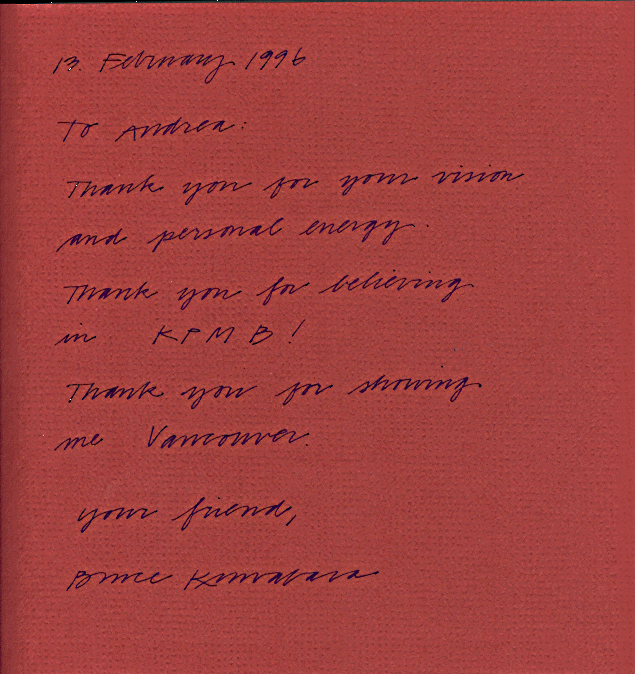 13. February 1996
To Andrea:
Thank you for your vision
and personal energy.
Thank you for believing
in KPMB!
Thank you for showing
me Vancouver.
your friend,
Bruce Kuwabara